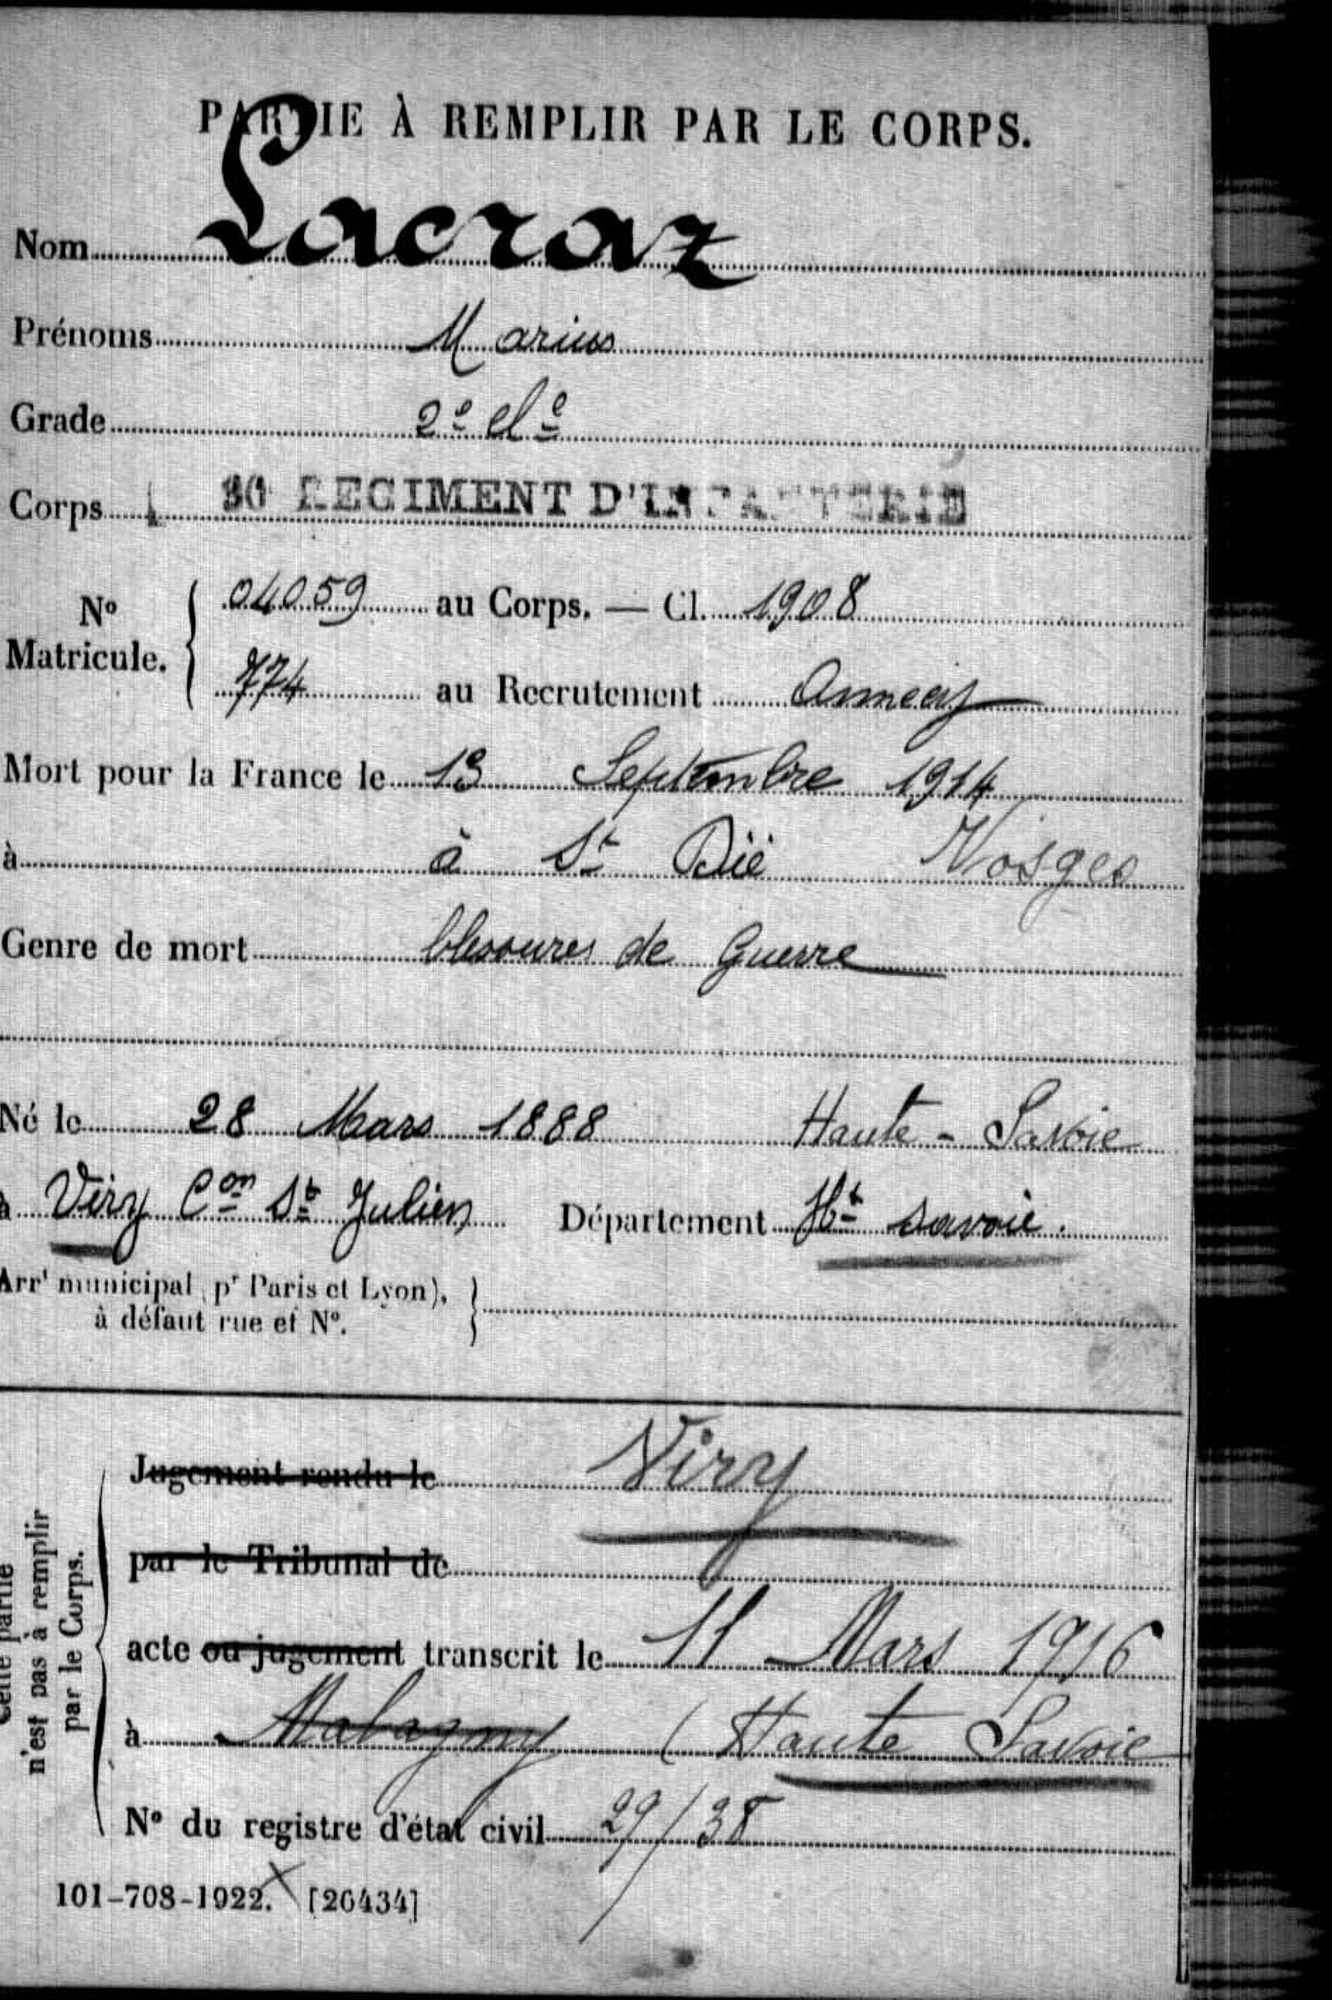 PARTIE À REMPLIR PAR LE CORPS.
Nom Lacraz
Prénoms Marius
Grade 2e cle
Corps 30 REGIMENT D'INFANTERIE
No Matricule. { 04059 au Corps. — Cl. 1908
774 au Recrutement Annecy
Mort pour la France le 13 Septembre 1914
à à St Dié Vosges
Genre de mort blessures de Guerre
Né le 28 Mars 1888 Haute-Savoie
à Viry Con St Julien Département Hte savoie.
Arrt municipal (pr Paris et Lyon), }
à défaut rue et No.
Cette partie
n'est pas à remplir
par le Corps.
Jugement rendu le Viry
par le Tribunal de
acte ou jugement transcrit le 11 Mars 1916
à Malagny (Haute Savoie
No du registre d'état civil 29/38
101-708-1922. [26434]